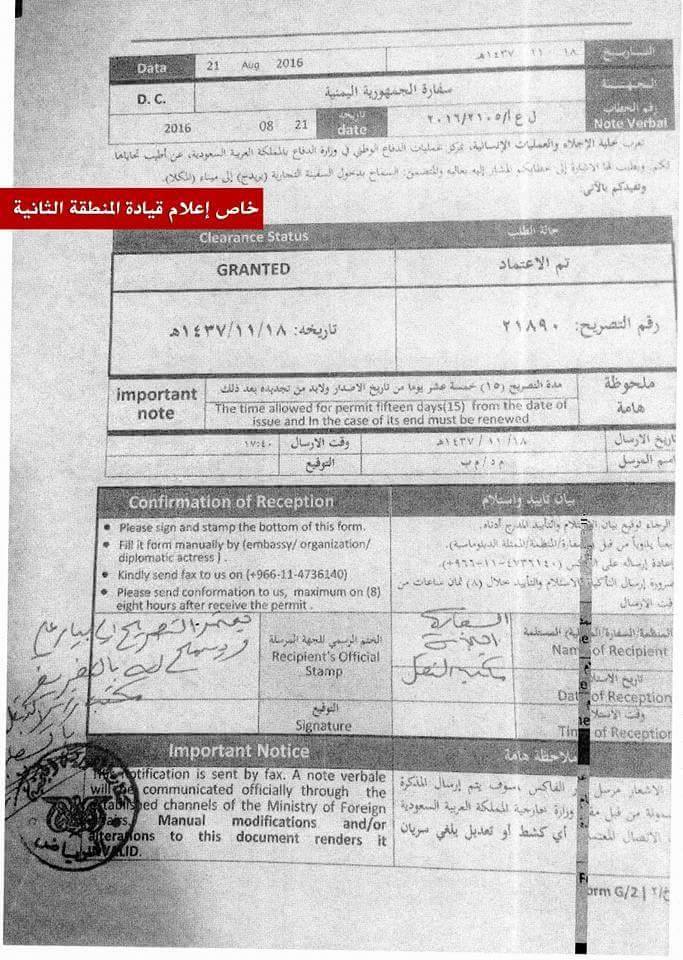 التاريخ ١٨ ١١ ١٤٣٧هـ
Data 21 Aug 2016
الجهة سفارة الجمهورية اليمنية D. C.
رقم الخطاب Note Verbal ل ع أ/٢٠١٦/٢١٠٥ تاريخه date 21 08 2016
خلية الإجلاء والعمليات الإنسانية، بمركز عمليات الدفاع الوطني في وزارة الدفاع بالمملكة العربية السعودية، عن أطيب تحياتها
لكم. ويطيب لها الاشارة إلى خطابكم المشار إليه بعاليه والمتضمن: السماح بدخول السفينة التجارية (بريدج) إلى ميناء (المكلا).
ونفيدكم بالآتي.
خاص إعلام قيادة المنطقة الثانية
حالة الطلب Clearance Status
تم الاعتماد GRANTED
رقم التصريح: ٢١٨٩٠ تاريخه: ١٤٣٧/١١/١٨هـ
ملحوظة هامة
مدة التصريح (١٥) خمسة عشر يوما من تاريخ الاصدار ولابد من تجديده بعد ذلك
important note
The time allowed for permit fifteen days(15) from the date of
issue and In the case of its end must be renewed
تاريخ الارسال ١٨/ ١١/ ١٤٣٧هـ وقت الارسال ١٧:٤٠
اسم المرسل م د/ م ب التوقيع
Confirmation of Reception
بيان تأييد واستلام
• Please sign and stamp the bottom of this form.
• Fill it form manually by (embassy/ organization/
diplomatic actress ) .
• Kindly send fax to us on (+966-11-4736140)
• Please send conformation to us, maximum on (8)
eight hours after receive the permit .
الرجاء توقيع بيان الاستلام والتأييد المدرج أدناه.
إعادة إرساله على الفاكس (٤٧٣٦١٤٠-١١-٩٦٦+)
ضرورة إرسال التأكيد بالاستلام والتأييد خلال (٨) ثمان ساعات من
وقت الارسال
المستلمة
Name of Recipient
السفارة
اليمنية
مكتب النقل
الختم الرسمي للجهة المرسلة
Recipient's Official
Stamp
تاريخ الاستلام
Date of Reception
وقت الاستلام
Time of Reception
التوقيع
Signature
يعتمد التصريح
Important Notice
ملاحظة هامة
This notification is sent by fax. A note verbale
will be communicated officially through the
established channels of the Ministry of Foreign
Affairs. Manual modifications and/or
alterations to this document renders it
INVALID.
الاشعار مرسل الفاكس .سوف يتم إرسال المذكرة
من قبل وزارة الخارجية المملكة العربية السعودية
الاتصال أي كشط أو تعديل يلغي سريان
Form G/2